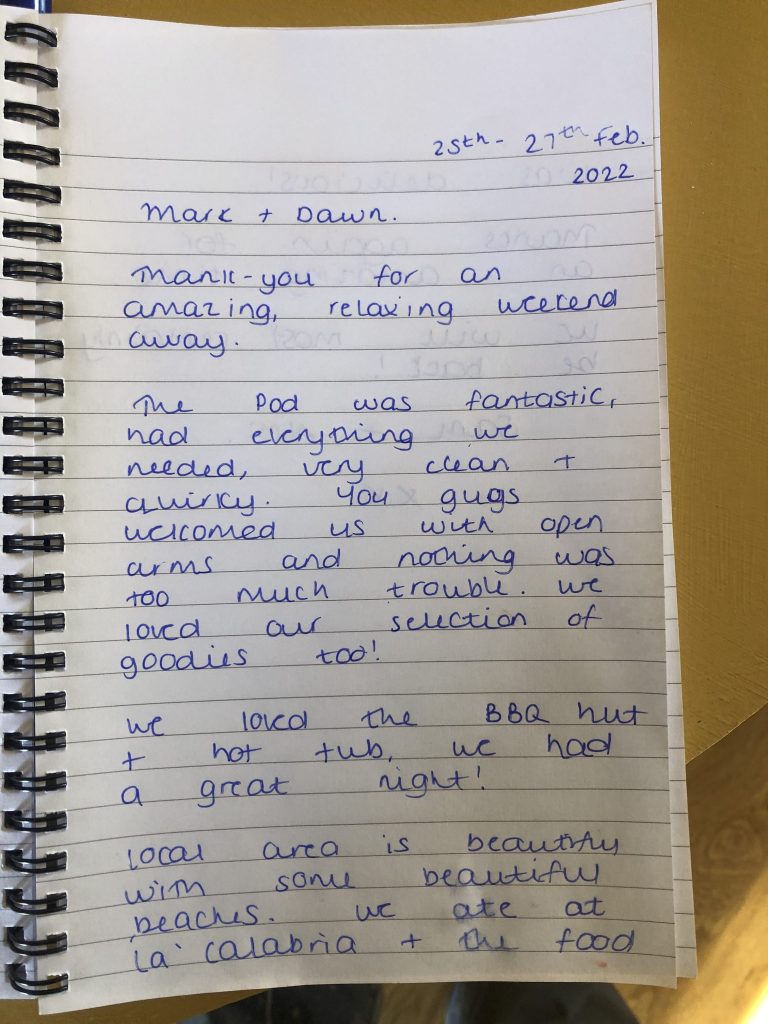 25th - 27th Feb.
2022
Mark + Dawn.
Thank-you for an
amazing, relaxing weekend
away.
The Pod was fantastic,
had everything we
needed, very clean +
quirky. You guys
welcomed us with open
arms and nothing was
too much trouble. We
loved our selection of
goodies too!
We loved the BBQ hut
+ hot tub, we had
a great night!
Local area is beautifly
with some beautiful
beaches. We ate at
La' Calabria + the food